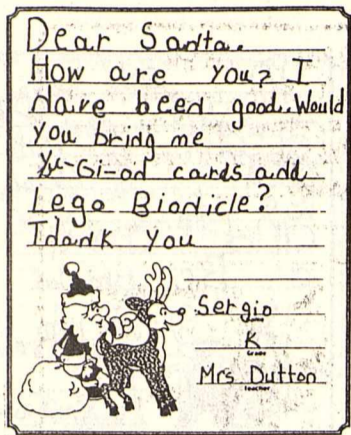 Dear Santa.
How are you? I
Have been good. Would
you bring me
Yu-Gi-oh cards and
Lego Bionicle?
Thank you
Sergio
name
K
Grade
Mrs Dutton
teacher